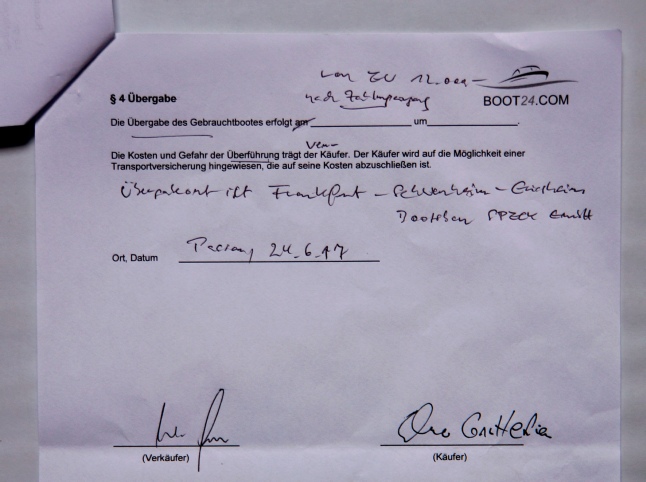 von EU 12.000 –
nach Zahlungseingang
BOOT24.COM
§ 4 Übergabe
Die Übergabe des Gebrauchtbootes erfolgt am um
Ver-
Die Kosten und Gefahr der Überführung trägt der Käufer. Der Käufer wird auf die Möglichkeit einer
Transportversicherung hingewiesen, die auf seine Kosten abzuschließen ist.
ist Frankfurt –
GmbH
Ort, Datum 24.6.17
(Verkäufer) (Käufer)